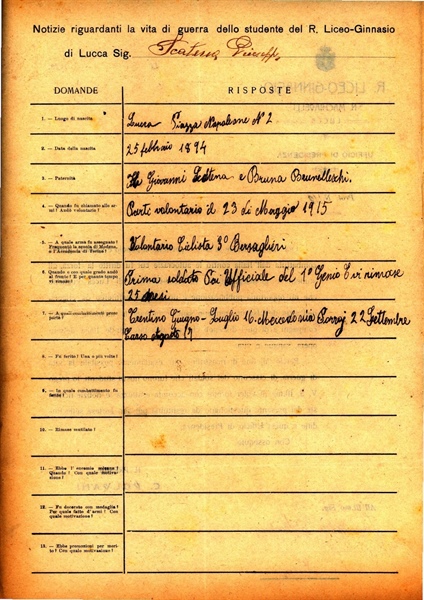 Notizie riguardanti la vita di guerra dello studente del R. Liceo-Ginnasio
di Lucca Sig. Giuseppe
DOMANDE RISPOSTE
1. — Luogo di nascita
Lucca Piazza Napoleone N° 2
2. — Data della nascita
25 febbraio 1894
3. — Paternità
Giovanni e Bruna Brunelleschi.
4. — Quando fu chiamato alle armi? Andò volontario?
Partì volontario il 23 di Maggio 1915
5. — A quale arma fu assegnato?
Frequentò la scuola di Modena
o l'Accademia di Torino?
Volontario Ciclista 3° Bersaglieri
6. — Quando e con quale grado andò
al fronte? E per quanto tempo
vi rimase?
Prima soldato Poi Ufficiale del 1° Genio E vi rimase
25 mesi
7. — A quali combattimenti prese
parte?
Trentino Giugno - Luglio 16. 22 Settembre
Carso Agosto 17
8. — Fu ferito? Una o più volte?
9. — In quale combattimento fu
ferito?
10. — Rimase mutilato?
11. — Ebbe l'encomio solenne?
Quando? Con quale motivazione?
12. — Fu decorato con medaglia?
Per quale fatto d'armi? Con
quale motivazione?
13. — Ebbe promozioni per merito?
Con quale motivazione?